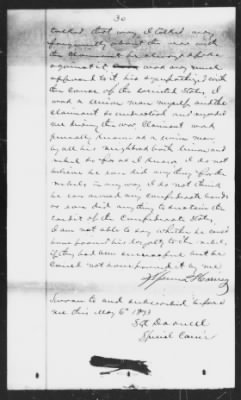 30
talked that way, I talked very
frequently about the war with
the claimant he always talked
against it and was much
opposed to it, his sympathized with
the cause of the United States, I
was a Union man myself and the
claimant so understood and regarded
me during the war, Claimant was
generally known as a Union man
by all his neighbors both Union and
rebel so far as I know. I do not
believe he ever did any thing for the
rebels in any way, I do not think
he ever owned any Confederate bonds
or ever did any thing to sustain the
credit of the Confederate States,
I am not able to say whether he could
have proved his loyalty to the rebels
if they had been successful but he
could not have proved it by me
Harvey
Sworn to and subscribed before
me this May 6th 1873
Special Com'r